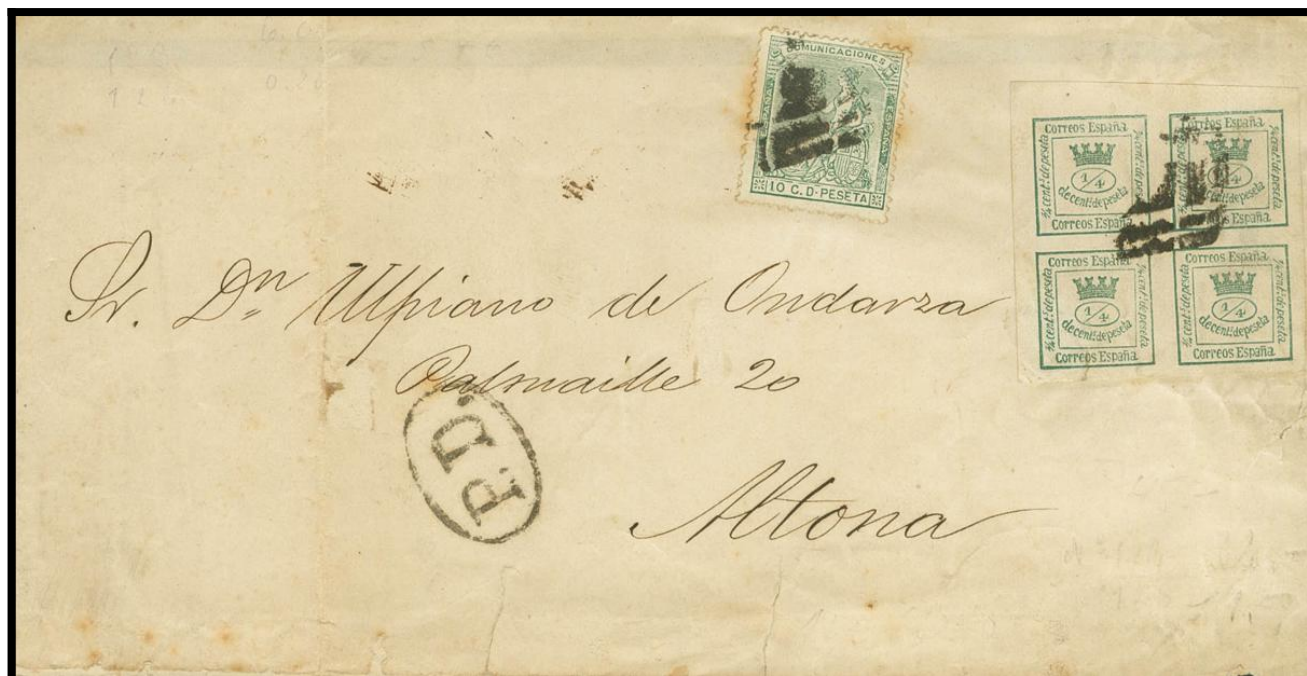 COMUNICACIONES
ESPAÑA
10 C. D. PESETA
Correos España
1/4
de cent.º de peseta
Correos España
Correos España
1/4
de cent.º de peseta
Correos España
Correos España
1/4
de cent.º de peseta
Correos España
Correos España
1/4
de cent.º de peseta
Correos España
Sr. Dn Ulpiano de Ondarza
Palmaille 20
P.D.
Altona